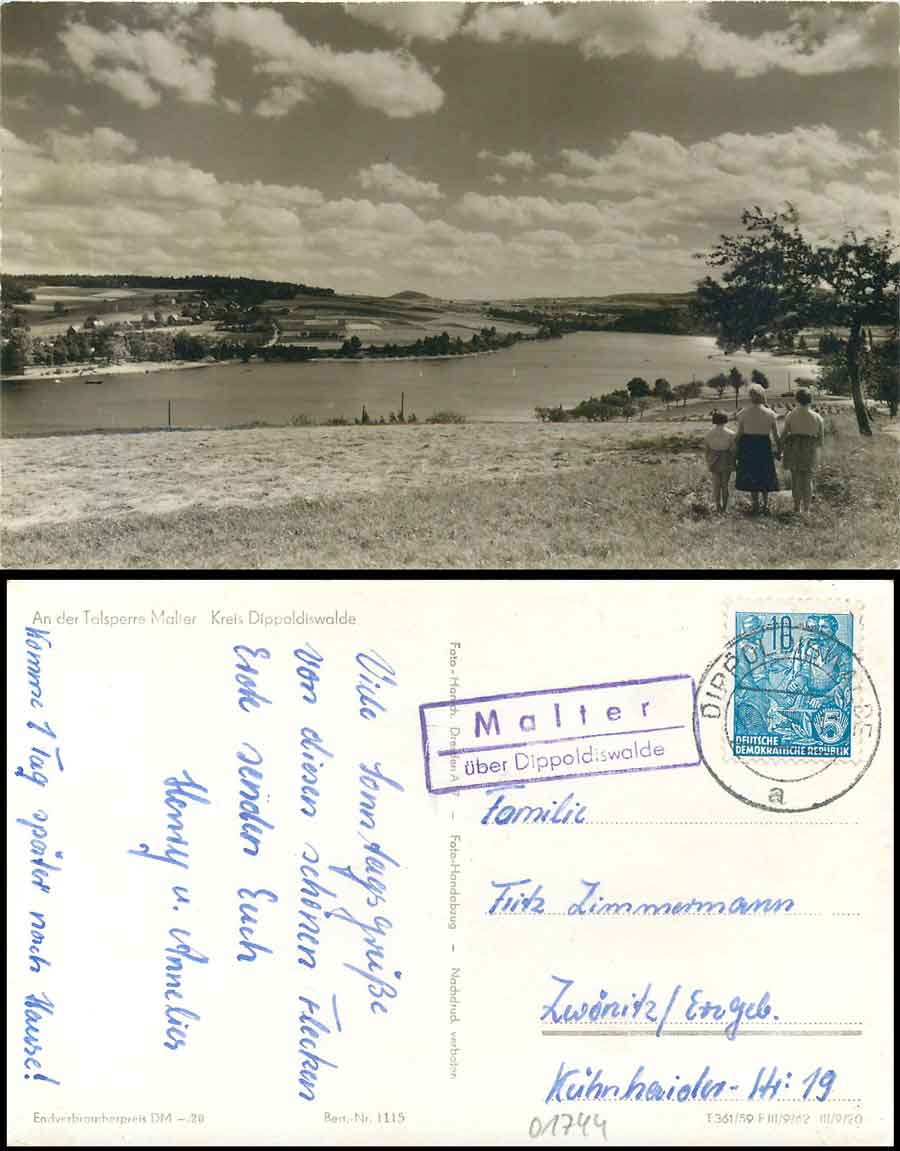 An der Talsperre Malter Kreis Dippoldiswalde
Viele Sonntagsgrüße
von diesen schönen Flecken
Erde senden Euch
Henry u. Annelies
Komme 1 Tag später nach Hause!
Foto-Handabzug – Nachdruck verboten
Malter
über Dippoldiswalde
DIPPOLDISWALDE
a
10
5
DEUTSCHE
DEMOKRATISCHE REPUBLIK
Familie
Fritz Zimmermann
Zwönitz/Erzgeb.
Kühnhaider-Str. 19
Endverbraucherpreis DM –.20
Best.-Nr. 1115
01744
T 361/59 F III/9/62 III/9/20